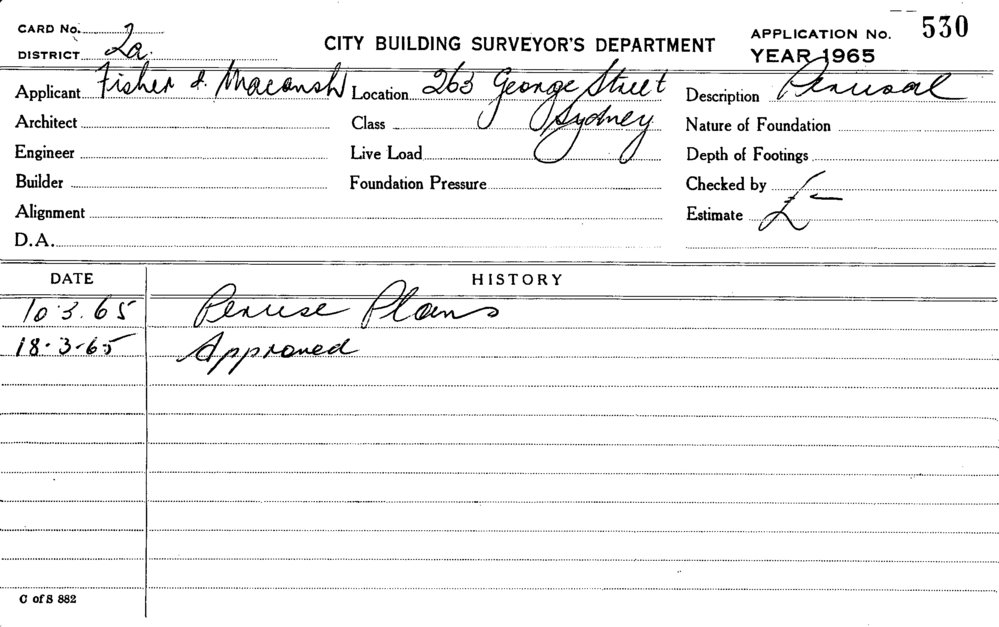 CARD No.
DISTRICT 2a.
CITY BUILDING SURVEYOR'S DEPARTMENT
APPLICATION No. 530
YEAR 1965
Applicant Fisher & Macansh Location 263 George Street Description Perusal
Architect Class Sydney Nature of Foundation
Engineer Live Load Depth of Footings
Builder Foundation Pressure Checked by
Alignment Estimate £ -
D.A.
DATE HISTORY
10.3.65 Peruse Plans
18.3.65 Approved
C of S 882